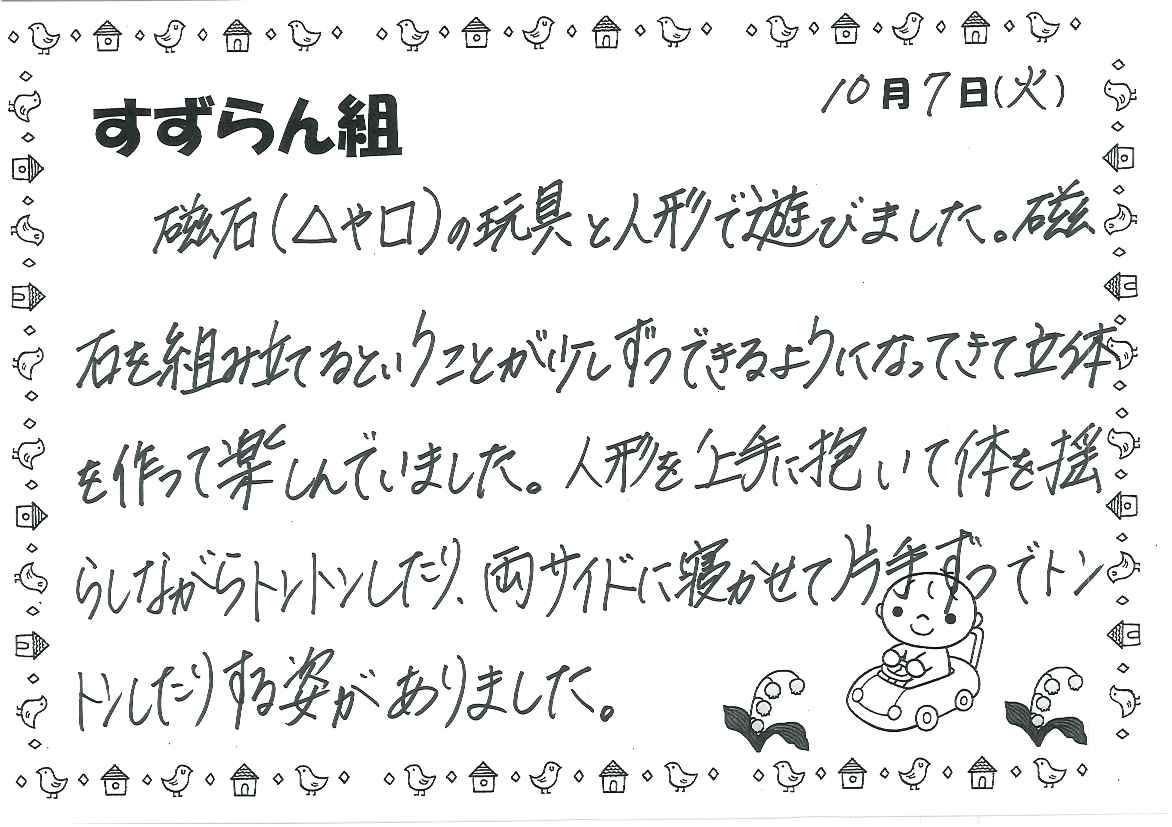 10月7日(火)
すずらん組
磁石(△や口)の玩具と人形で遊びました。磁
石を組み立てるということが少しずつできるようになってきて立体
を作って楽しんでいました。人形を上手に抱いて体を揺
らしながらトントンしたり、両サイドに寝かせて片手ずつでトン
トンしたりする姿がありました。